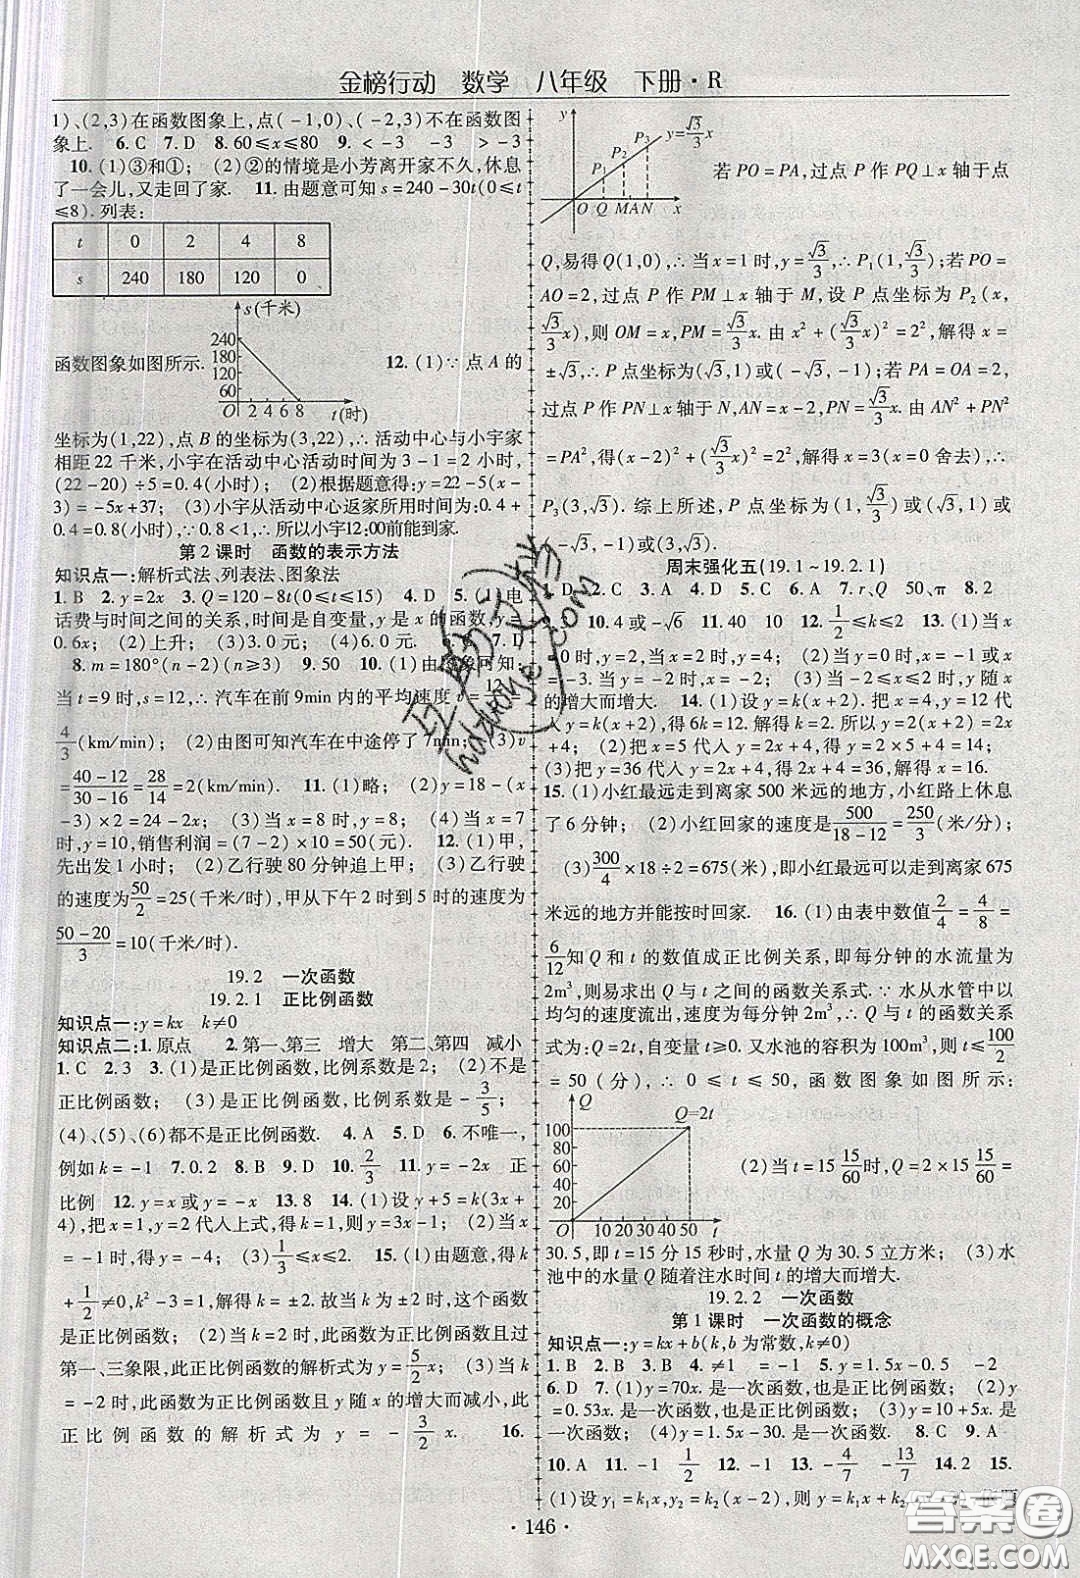 金榜行动 数学 八年级 下册·R
1)、(2,3)在函数图象上,点(-1,0)、(-2,3)不在函数图
象上. 6.C 7.D 8.60≤x≤80 9.<-3 -3 >-3
10.(1)③和①; (2)②的情境是小芳离开家不久,休息
了一会儿,又走回了家. 11.由题意可知s=240-30t(0≤t
≤8).列表:
t 0 2 4 8
s 240 180 120 0
s(千米)
240
180
120
60
O 2 4 6 8 t(时)
函数图象如图所示. 12.(1)∵点A的
坐标为(1,22),点B的坐标为(3,22),∴活动中心与小宇家
相距22千米,小宇在活动中心活动时间为3-1=2小时,
(22-20)÷5=0.4(小时); (2)根据题意得:y=22-5(x-
3)=-5x+37; (3)小宇从活动中心返家所用时间为:0.4+
0.4=0.8(小时),∵0.8<1,∴所以小宇12:00前能到家.
第2课时 函数的表示方法
知识点一:解析式法、列表法、图象法
1.B 2.y=2x 3.Q=120-8t(0≤t≤15) 4.D 5.(1)电
话费与时间之间的关系,时间是自变量,y是x的函数,y=
0.6x; (2)上升; (3)3.0元; (4)6.0元. 7.D
8.m=180°(n-2)(n≥3) 9.50 10.(1)由图象可知,
当t=9时,s=12,∴汽车在前9min内的平均速度
4/3(km/min); (2)由图可知汽车在中途停了7min; (3)v
=(40-12)/(30-16)=28/14=2(km/min). 11.(1)略; (2)y=18-(x
-3)×2=24-2x; (3)当x=6时,y=12; (4)当x=7
时,y=10,销售利润=(7-2)×10=50(元). 12.(1)甲,
先出发1小时; (2)乙行驶80分钟追上甲; (3)乙行驶
的速度为50/2=25(千米/时),甲从下午2时到5时的速度为
(50-20)/3=10(千米/时).
19.2 一次函数
19.2.1 正比例函数
知识点一:y=kx k≠0
知识点二:1.原点 2.第一、第三 增大 第二、第四 减小
1.C 2.3 3.(1)是正比例函数,比例系数是2; (2)不是
正比例函数; (3)是正比例函数,比例系数是-3/5;
(4)、(5)、(6)都不是正比例函数. 4.A 5.D 6.不唯一,
例如k=-1 7.0.2 8.B 9.D 10.2/3 11.y=-2x 正
比例 12.y=x或y=-x 13.8 14.(1)设y+5=k(3x+
4),把x=1,y=2代入上式,得k=1,则y=3x-1; (2)当x
=-1时,得y=-4; (3)1/3≤x≤2. 15.(1)由题意,得k
+1/2≠0,k²-3=1,解得:k=±2.故当k=±2时,这个函数
是正比例函数; (2)当k=2时,正比例函数图象且过
第一、三象限,此正比例函数的解析式为y=5/2x; (3)当k
=-2时,此函数为正比例函数且y随x的增大而减小,此
正比例函数的解析式为y=-3/2x. 16.
y
P₃
P₂
P₁
y=√3/3 x
O Q M A N x
若PO=PA,过点P作PQ⊥x轴于点
Q,易得Q(1,0),∴当x=1时,y=√3/3,∴P₁(1,√3/3);若PO=
AO=2,过点P作PM⊥x轴于M,设P点坐标为P₂(x,
√3/3x),则OM=x,PM=√3/3x. 由x²+(√3/3x)²=2²,解得x=
±√3,∴P点坐标为(√3,1)或(-√3,-1);若PA=OA=2,
过点P作PN⊥x轴于N,AN=x-2,PN=√3/3x. 由AN²+PN²
=PA²,得(x-2)²+(√3/3x)²=2²,解得x=3(x=0舍去),∴
P₃(3,√3). 综上所述,P点坐标为(1,√3/3)或(√3,1)或
(-√3,-1)或(3,√3).
周末强化五(19.1~19.2.1)
D 2.C 3.C 4.D 5.A 6.A 7.r、Q 50、π 8.2
10.4或-√6 11.40 10 12.1/2≤k≤2 13.(1)当
=0时,y=2,当x=2时,y=4; (2)当y=0时,x=-1或x
=3,当y=-2时x=-2; (3)当-2≤x≤2时,y随x
的增大而增大. 14.(1)设y=k(x+2). 把x=4,y=12代
入y=k(x+2),得6k=12. 解得k=2. 所以y=2(x+2)=2x
+4; (2)把x=5代入y=2x+4,得y=2×5+4=14;
(3)把y=36代入y=2x+4,得36=2x+4. 解得x=16.
15.(1)小红最远走到离家500米远的地方,小红路上休息
了6分钟; (2)小红回家的速度是500/(18-12)=250/3(米/分);
(3)300/4×18÷2=675(米),即小红最远可以走到离家675
米远的地方并能按时回家. 16.(1)由表中数值2/4=4/8=
6/12知Q和t的数值成正比例关系,即每分钟的水流量为
2m³,则易求出Q与t之间的函数关系式.∵水从水管中以
均匀的速度流出,速度为每分钟2m³,∴Q与t的函数关系
式为:Q=2t,自变量t≥0. 又水池的容积为100m³,则t≤100/2
=50(分),∴0≤t≤50,函数图象如图所示:
Q
Q=2t
100
80
60
40
20
O 10 20 30 40 50 t
(2)当t=15 15/60时,Q=2×15 15/60=
30.5,即t=15分15秒时,水量Q为30.5立方米; (3)水
池中的水量Q随着注水时间t的增大而增大.
19.2.2 一次函数
第1课时 一次函数的概念
知识点一:y=kx+b(k,b为常数,k≠0)
1.B 2.B 3.B 4.≠1 =-1 5.y=1.5x-0.5 -2
6.D 7.(1)y=70x. 是一次函数,也是正比例函数; (2)y
=0.53x. 是一次函数,也是正比例函数; (3)y=10+5x. 是
一次函数; (4)y=1.5x-30. 是一次函数. 8.C 9.A
10.A 11.A 12.-1 13.-4/7 -13/7 14.2 15.
(1)设y₁=k₁x,y₂=k₂(x-2),则y=k₁x+k₂
· 146 ·
答案圈
MXQE.COM